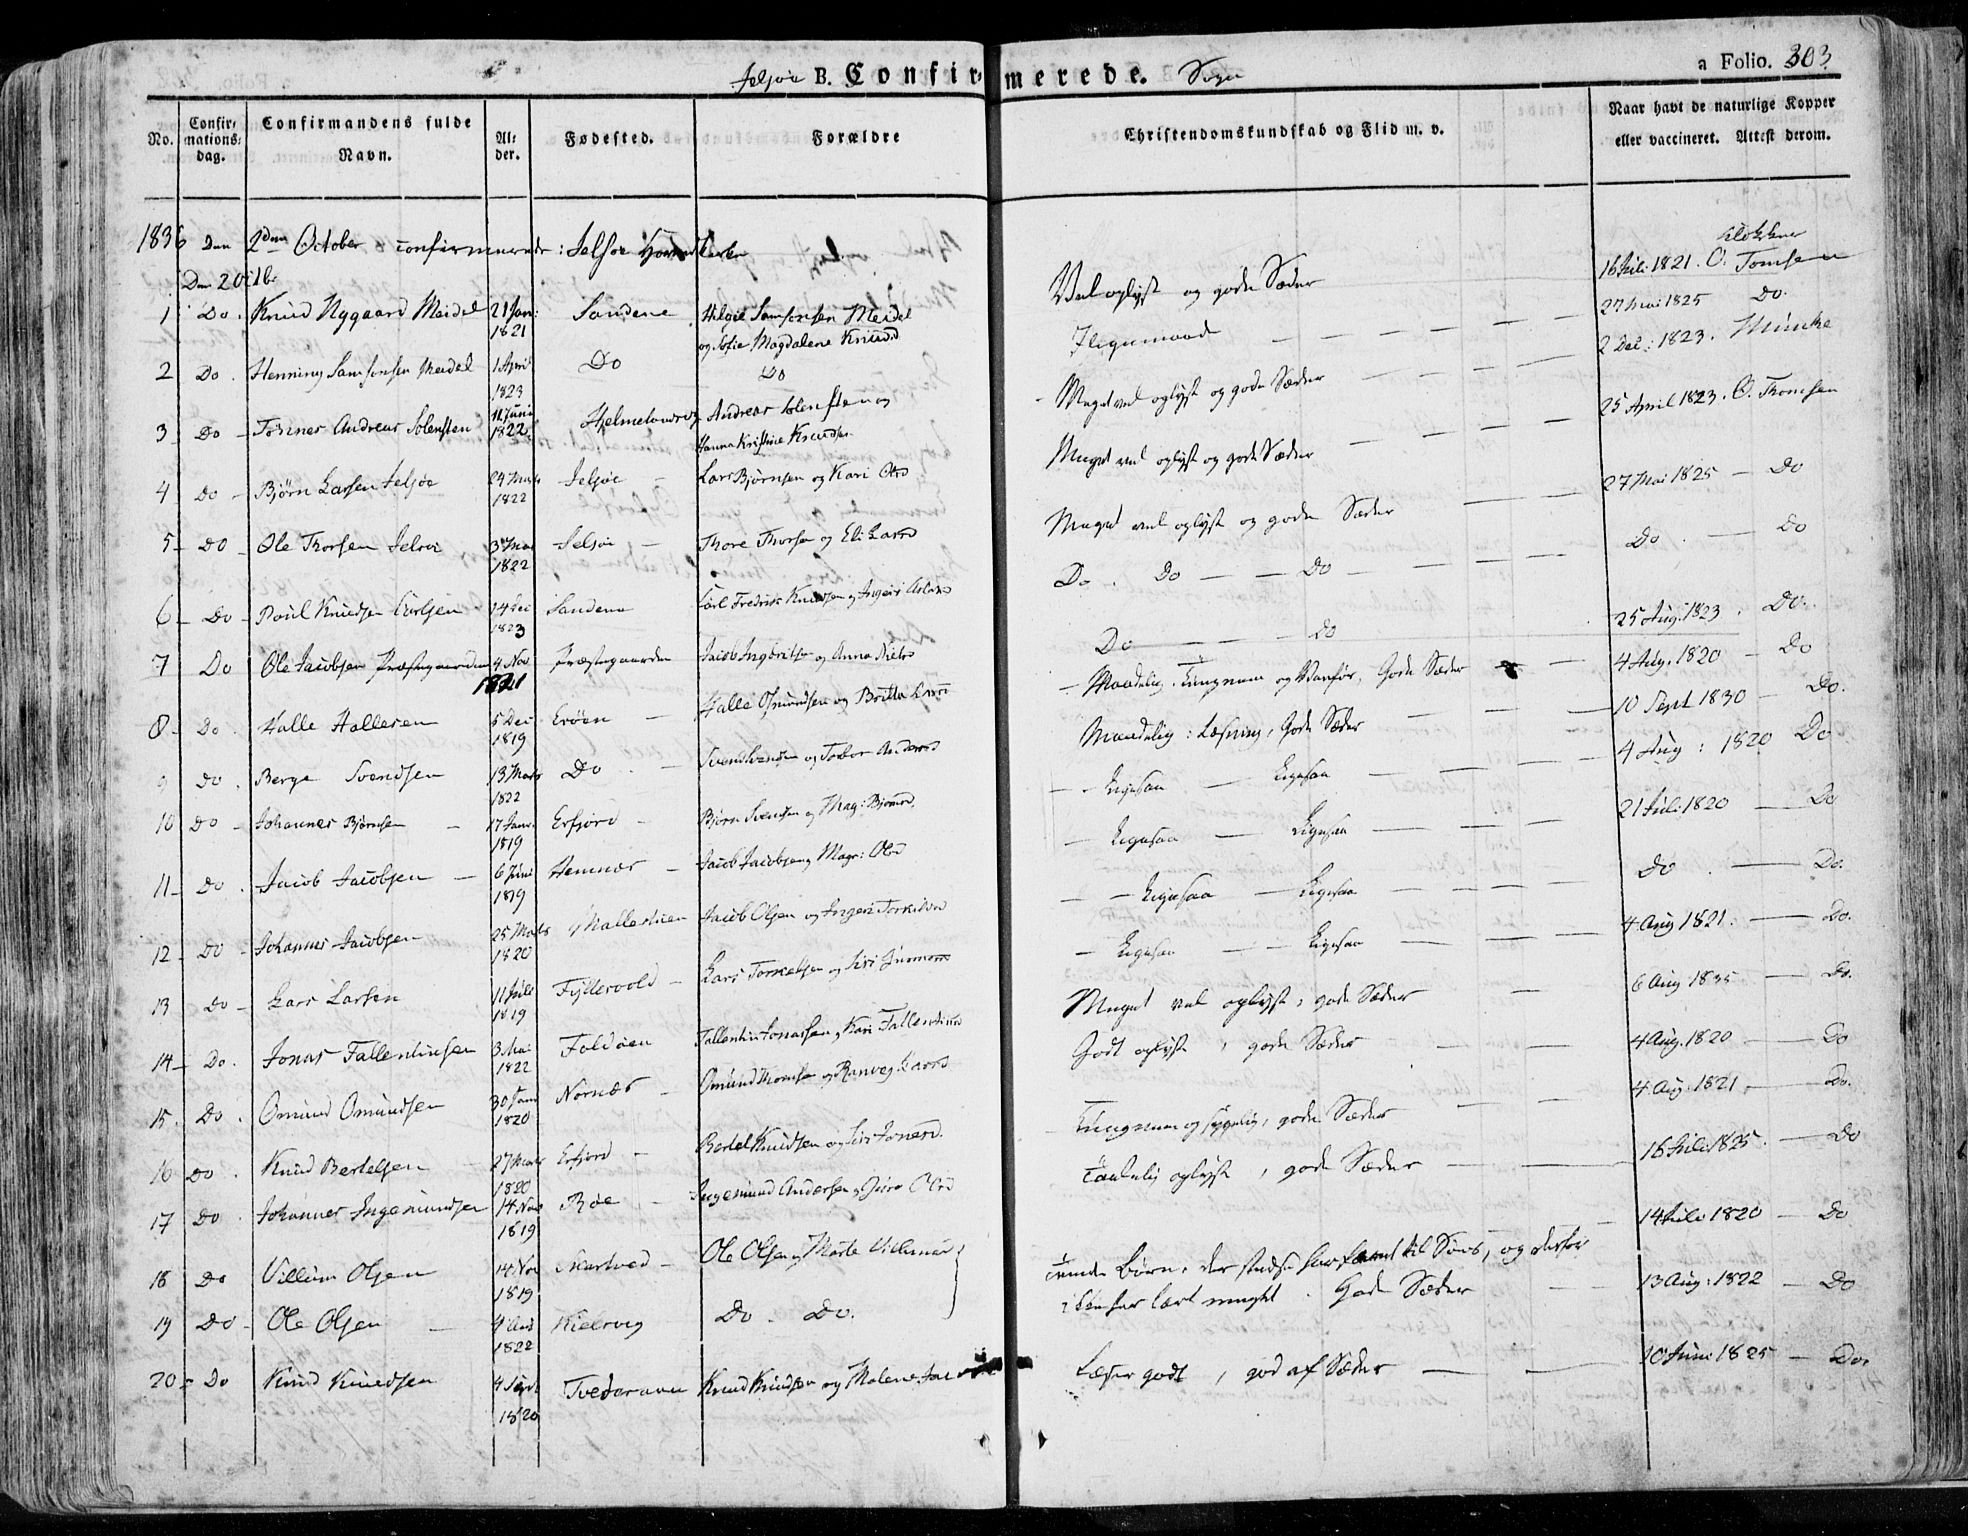 Jelsøe B. Confirmerede. Sogn a Folio. 303.
No. Confirmationsdag. Confirmandens fulde Navn. Alder. Fødested. Forældre Christendomskundskab og Flid m. v. Naar havt de naturlige Kopper eller vaccineret. Attest derom.
1836 Den 2den October confirmerede i Jelsøe Hoved Kirke
Den 2 Octbr
1 Do. Knud Nygaard Meidel 21 Jan: 1821 Sandene Helgie Samsonsen Meidel og Sofie Magdalene Knudsd Vel oplyst og gode Sæder 16 Juli 1821. O. Tomsen Klokker
2 Do. Henning Samsonsen Meidel 1 April 1823 Do Do Ligemaad 27 Mai 1825 Do.
3 Do Tønnes Andreas Solensten 11 Juni 1822 Hjelmelandsvog Andreas Solensten og Hanna Kristine Knudsen Meget vel oplyst og gode Sæder 2 Dec: 1823. Münche
4 Do Bjørn Larsen Jelsøe 24 Marts 1822 Jelsøe Lars Bjørnsen og Kari Olsd Meget vel oplyst og gode Sæder 25 April 1823. O. Thomsen
5 Do Ole Thorsen Jelsøe 3 Mai 1822 Jelsøe Thore Thorsen og Eli Larsd Meget vel oplyst og gode Sæder 27 Mai 1825 Do
6 Do Poul Knudsen Carlsen 14 Dec 1823 Sandene Carl Fredrik Knudsen og Ingeri Aslaksd Do. Do Do Do. Do
7 Do Ole Jacobsen Præstegaarden 4 Nov 1821 Præstegaarden Jacob Ingbritsen og Anna Nielsd Do Do 25 Aug. 1823. Do.
8 Do. Halle Hallesen 5 Dec 1819 Erøen Halle Osmundsen og Britta Larsd Maadelig. Tungnem og Vanfør, Gode Sæder 4 Aug. 1820 Do
9 Do. Berge Svendsen 13 Marts 1822 Do. Svend Svendsen og Tobor Andersd Maadelig i Læsning, Gode Sæder 10 Sept 1830 Do.
10 Do Johannes Bjørnsen 17 Janr. 1819 Erfjord Bjørn Svendsen og Mag: Bjørnsd. Ligesaa Ligesaa 4 Aug: 1820 Do
11 Do. Jacob Jacobsen 6 Juni 1819 Hemnes Jacob Jacobsen og Magr: Olsd Ligesaa Ligesaa 21 Juli 1820 Do
12 Do Johannes Jacobsen 25 Marts 1820 Mallestuen Jacob Olsen og Ingeri Torkilsd Ligesaa Ligesaa Do. Do.
13 Do Lars Larsen 11 Juli 1819 Fyllevold Lars Torkelsen og Siri Ligesaa Ligesaa 4 Aug 1821. Do.
14 Do. Jonas Fallentinsen 3 Mai 1822 Foldøen Fallentin Jonassen og Kari Fallentinsd Meget vel oplyst, gode Sæder 6 Aug 1835 Do.
15. Do. Omund Omundsen 30 Jan 1820 Nornæs Omund Thomsen og Ranveg Larsd Godt oplyst, gode Sæder 4 Aug. 1820 Do
16 Do. Knud Bertelsen 27 Marts 1820 Erfjord Bertel Knudsen og Siri Jonesd. Tungnem og sygelig, gode Sæder 4 Aug: 1821. Do.
17 Do. Johannes Ingemundsen 14 Nov 1819 Røe Ingemund Andersen og Olsd Taalelig oplyst, gode Sæder 16 Juli 1825. Do
18 Do Villum Olsen 14 Nov 1819 Ole Olsen og Marte Villumsd Børn, der stedse har faret til Søes, og derfor 14 Juli 1820 Do
19 Do Ole Olsen 1822 Kielsvig Do. Do. ikke har lært meget. Gode Sæder 13 Aug: 1822 Do
20 Do Knud Knudsen 4 Sept 1820 Tvedteraaen Knud Knudsen og Malene Læser godt, god af Sæder 10 Juni 1825 Do.